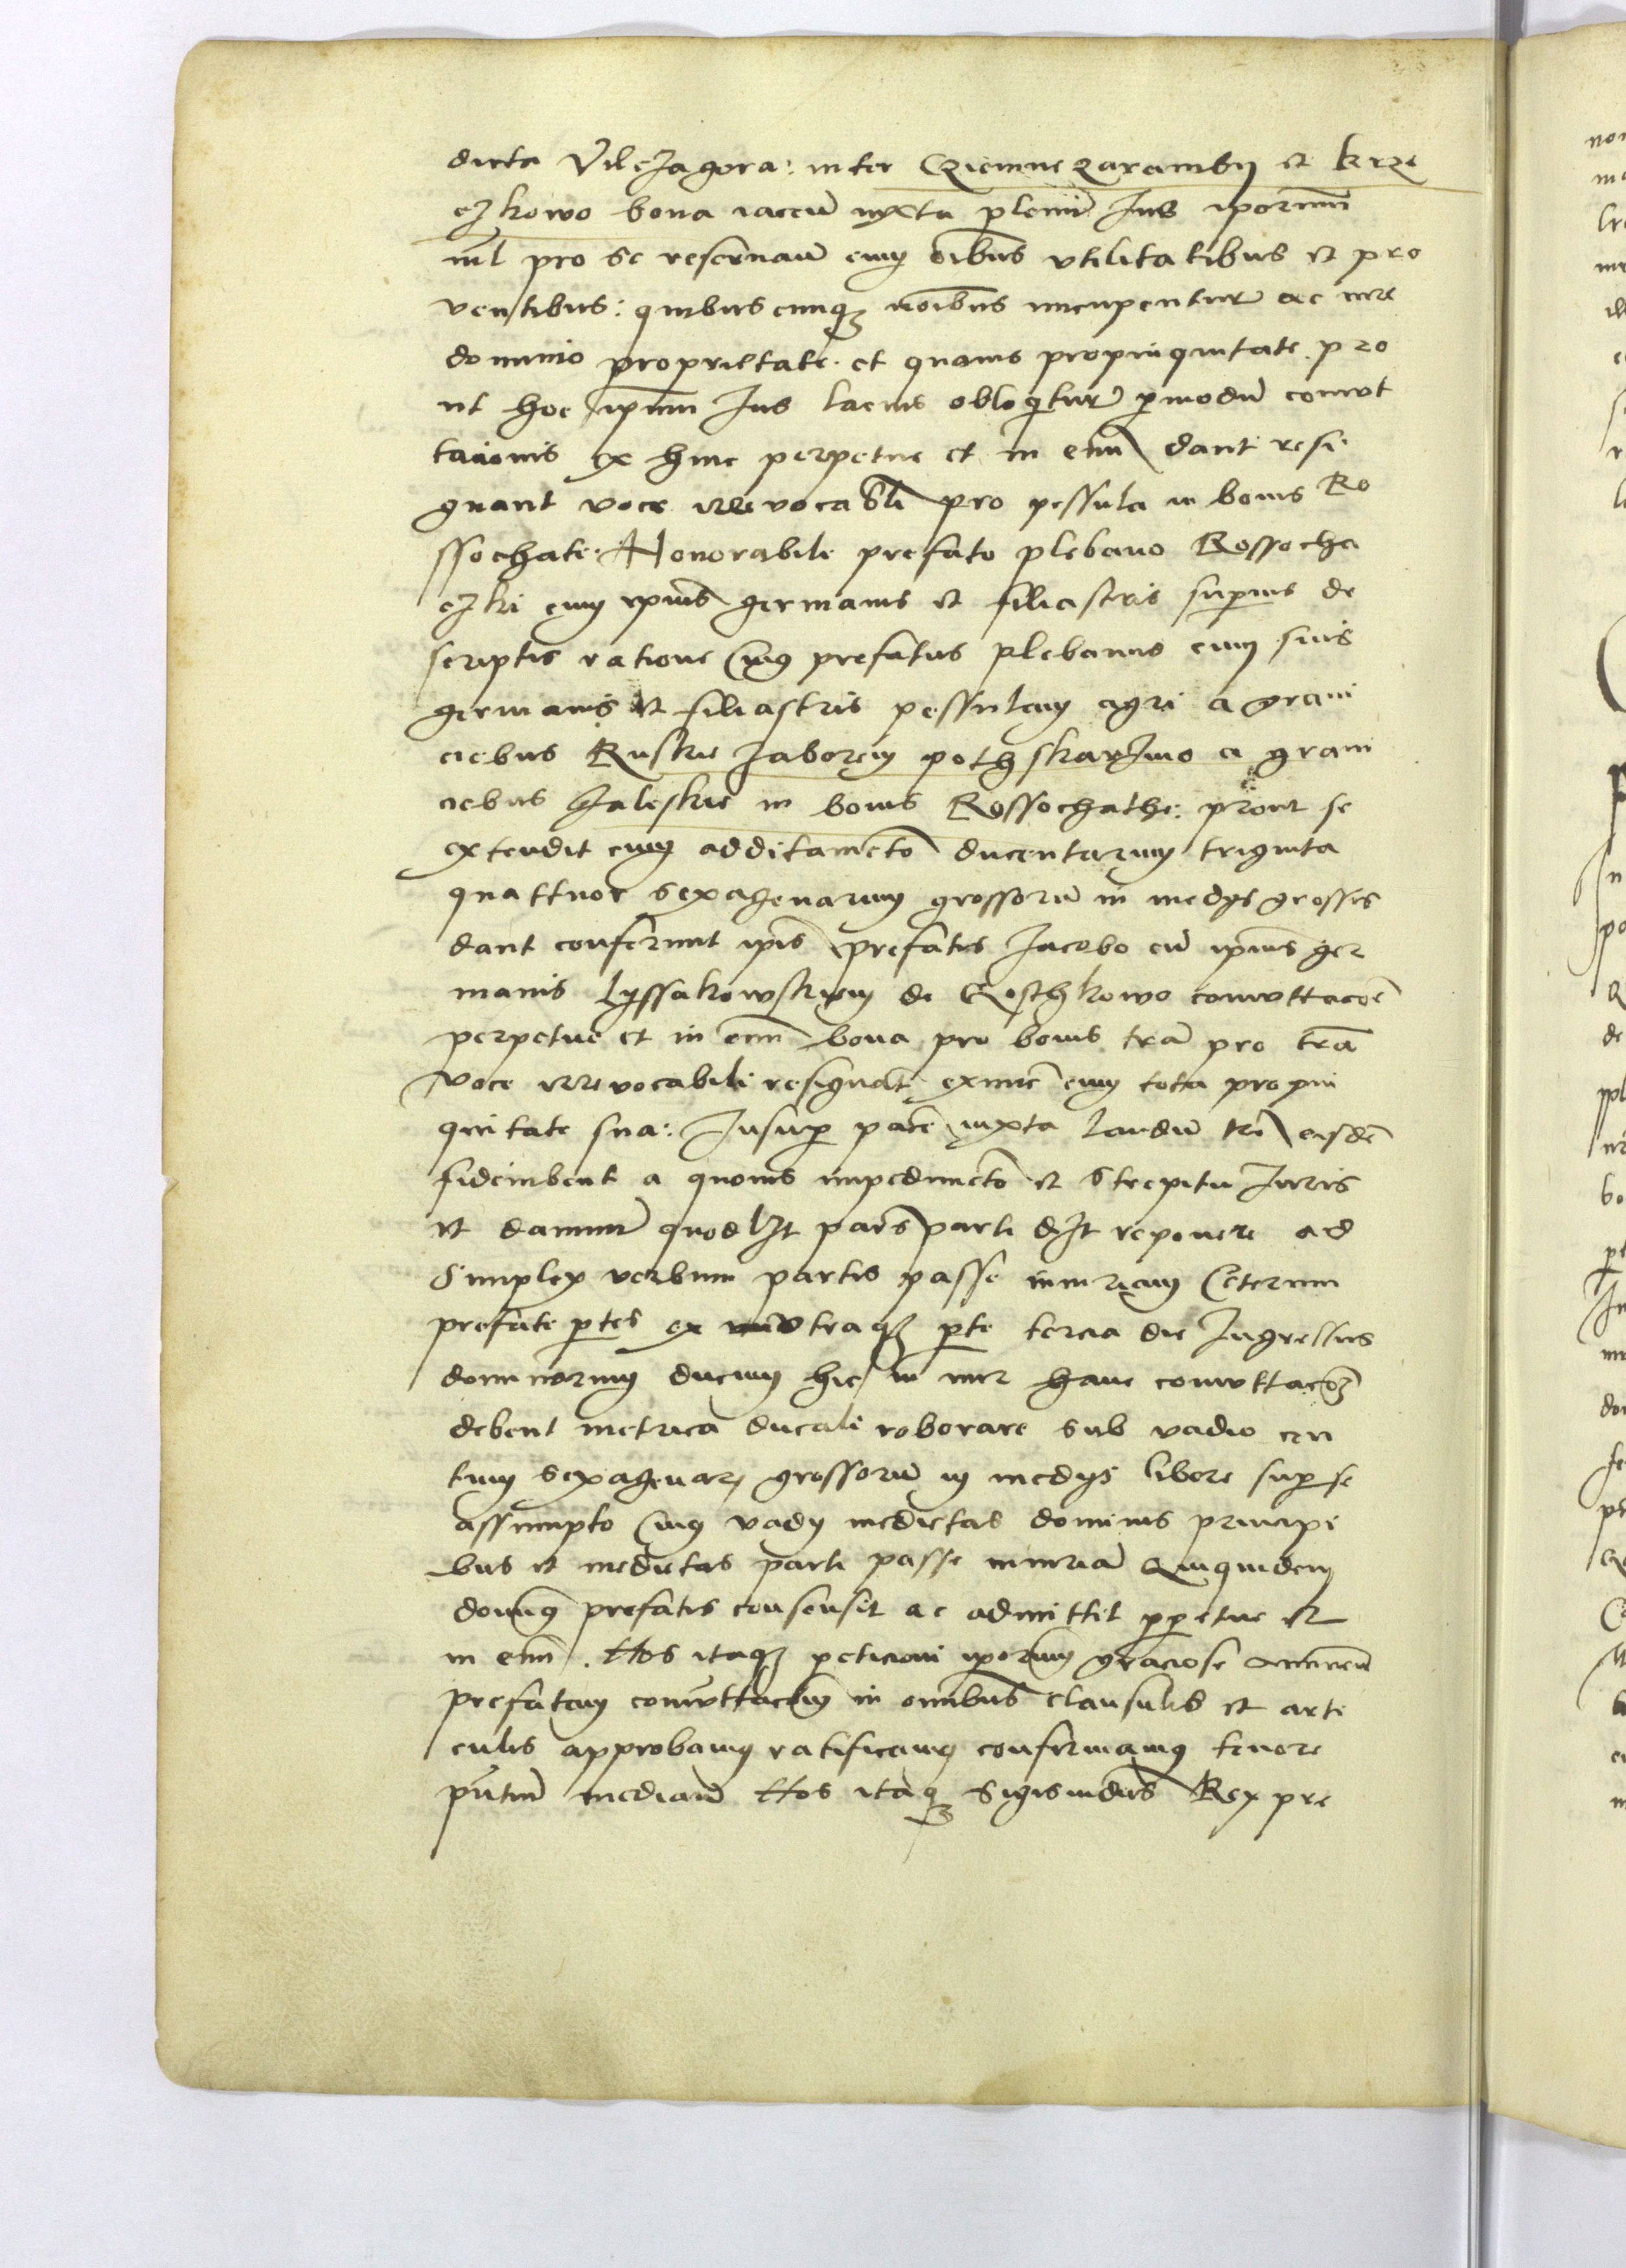 dicta Vilczagora: inter Cziemne zarambÿ et krze
czkowo bona iaceñ iuxta plenũ Ius ip̃orum
nil pro se reseruañ cum oĩbus vtilitatibus et pro
ventibus: quibuscunq₃ noĩbus nuncupentur ac iure
dominio proprietate. et quauis propinquitate. pro
ut hoc ip̃um Ius lacius obloqitur p̱modũ comut
tacionis ex hinc perpetue et in euũ dant resi
gnant voce irreuocabl̃i pro pessula in bonis Ro
ssochate: Honorabili prefato plebano Rossocha
czki cum ip̃ius germanis et filiastris superius de
scriptis ratione Cuius prefatus plebanus cum suis
germanis et filiastris pessulam agri a grani
ciebus Ruskie zaborem poth skarzino a grani
ciebus Zaleskie in bonis Rossochathe: prout se
extendit cum additamẽto ducentarum triginta
quattuor sexagenarum grossorũ in medÿs grossis
dant conferunt ip̃is prefatis Iacobo cũ ip̃ius ger
manis lÿssakowskÿm de Goschkowo comuttacõe
perpetue et in euũ bona pro bonis trã pro trã
voce irreuocabili resignãt exnũc cum tota propin
quitate sua: Insuper pacẽ iuxta laudũ trẽ eisdẽ
fideiubent a quouis impedimẽto et strepitu Iuris
et damnũ quodlz̃t pars parti dz̃t reponere ad
simplex verbum partis passe iniuriam Ceterum
prefate p̱tes ex vtraq₃ p̱te tercia die Ingressus
dominorum ducum hic in hanc comuttacõ₃
debent metrica ducali roborare sub vadio cen
tum sexagenar̃ grossorũ in medÿs libere super se
assumpto Cuius vadÿ medietas dominis principi
bus et medietas parti passe iniuriã Quiquidem
dominus prefatis consensit ac admittit p̱petue et
in euũ. Nos itaq₃ peticioni ip̃orum graciose annuẽ
prefatam comuttacõm in omnibus clausulis et arti
culis approbamus ratificamus confirmamus tenore
pñtiũ mediañ Nos itaq₃ Sigismũdus Rex pre